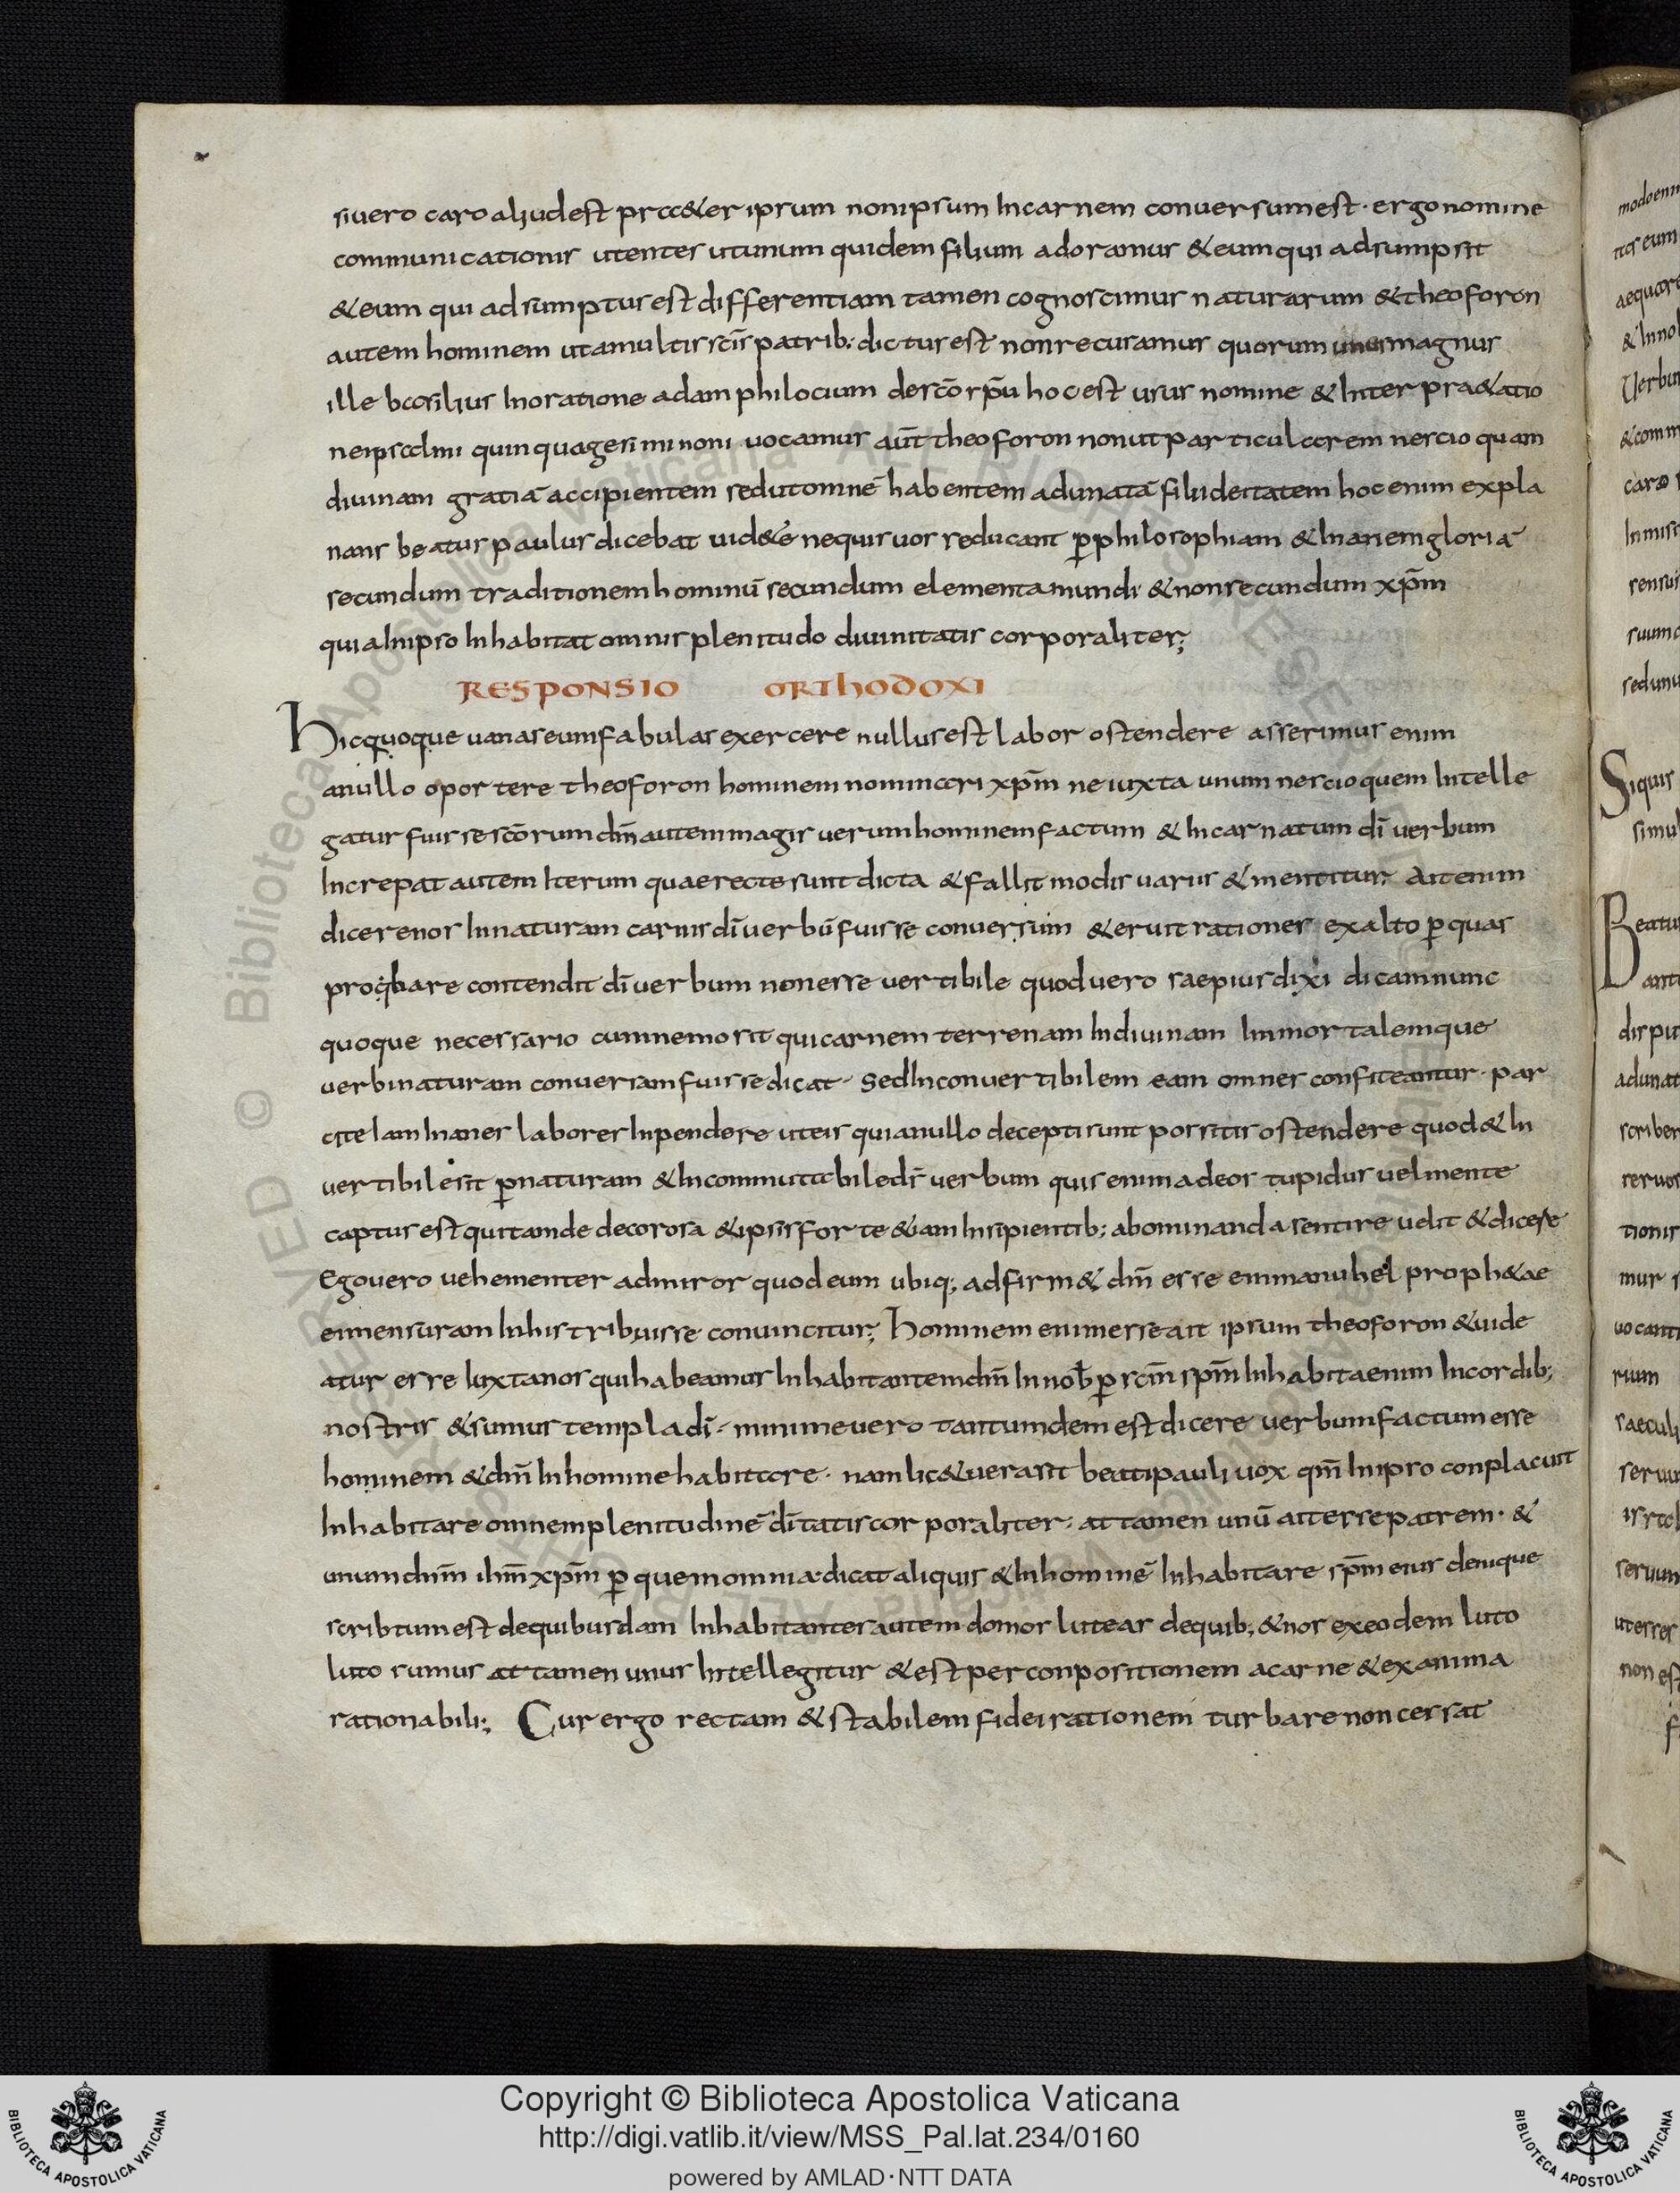 siuero caro aliudest praeter ipsum nonipsum Incarnem conuersumest· ergonomine
communicationis utentes utunum quidem filium adoramus &eumqui adsumpsit
&eum qui adsumptusest differentiam tamen cognoscimus naturarum &theoforon
autem hominem utamultis scīs patrib; dictusest nonrecusamus quorum unus magnus
ille basilius Inoratione adamphilocium descō spū hocest usus nomine &Interpraetatio
neipsalmi quinquagesiminoni uocamus aūt theoforon nonut particularem nescio quam
diuinam gratiā accipientem sedutomnē habentem adunatā filiideitatem hocenim expla
nans beatus paulus dicebat uid&e nequisuos seducant p̄philosophiam &Inanemgloriā
secundum traditionemhominū secundum elementamundi &nonsecundum xp̄m
quiaInipso Inhabitat omnis plenitudo diuinitatis corporaliter;
RESPONSIO ORTHODOXI
Hicquoque uanaseumfabulas exercere nullusest labor ostendere asserimus enim
anullo oportere theoforon hominem nominari xp̄m ne iuxta unum nescioquem Intelle
gatur fuisse scōrum dm̄ autemmagis uerumhominemfactum &Incarnatum dī uerbum
Increpat autem Iterum quaerecte sunt dicta &fallit modis uariis &mentitur; Aitenim
dicerenos Innaturam carnis dī uerbū fuisse conuersum &eruit rationes exalto p̄quas
probare contendit dī uerbum nonesse uertibile quoduero saepiusdixi dicamnunc
quoque necessario cumnemosit quicarnem terrenam Indiuinam Immortalemque
uerbinaturam conuersamfuissedicat· SedInconuertibilem eam omnes confiteantur· par
cite IamInanes labores Inpendere uteis quianullo deceptisunt possitis ostendere quod&In
uertibilesit p̄naturam &Incommutabiledī uerbum quis enimadeos tupidus uelmente
captus est quitamde decorosa &ipsisforte &iamInsipientib; abominanda sentire uelit &dicere
Egouero uehementer admiror quodeum ubiq; adfirm& dm̄ esse emmanuhel proph&ae
eimensuramInhis tribuisse conuincitur; Hominem enimesseait ipsum theoforon &uide
atur esse Iuxtanos quihabeamus Inhabitantemdm̄ Innob̄ p̄ scm̄ spm̄ Inhabitaenim Incordib;
nostris &sumus templa dī· minimeuero tantumdem est dicere uerbumfactumesse
hominem &dm̄ Inhominehabitare· namlic&uerasit beatipauli uox qm̄ Inipso conplacuit
Inhabitare omnemplenitudinē dītatis corporaliter· attamen unū aitessepatrem· &
unumdnm̄ ihm̄ xpm̄ p̄ quemomnia·dicat aliquis &Inhominē Inhabitare spm̄ eius denique
scribtumest dequibusdam Inhabitantes autem domos luteas dequib; &nos exeodem luto
luto sumus attamen unus Intellegitur &est perconpositionem acarne &exanima
rationabili; Cur ergo rectam &stabilem fideirationem turbare noncessat
Copyright © Biblioteca Apostolica Vaticana
http://digi.vatlib.it/view/MSS_Pal.lat.234/0160
powered by AMLAD·NTT DATA